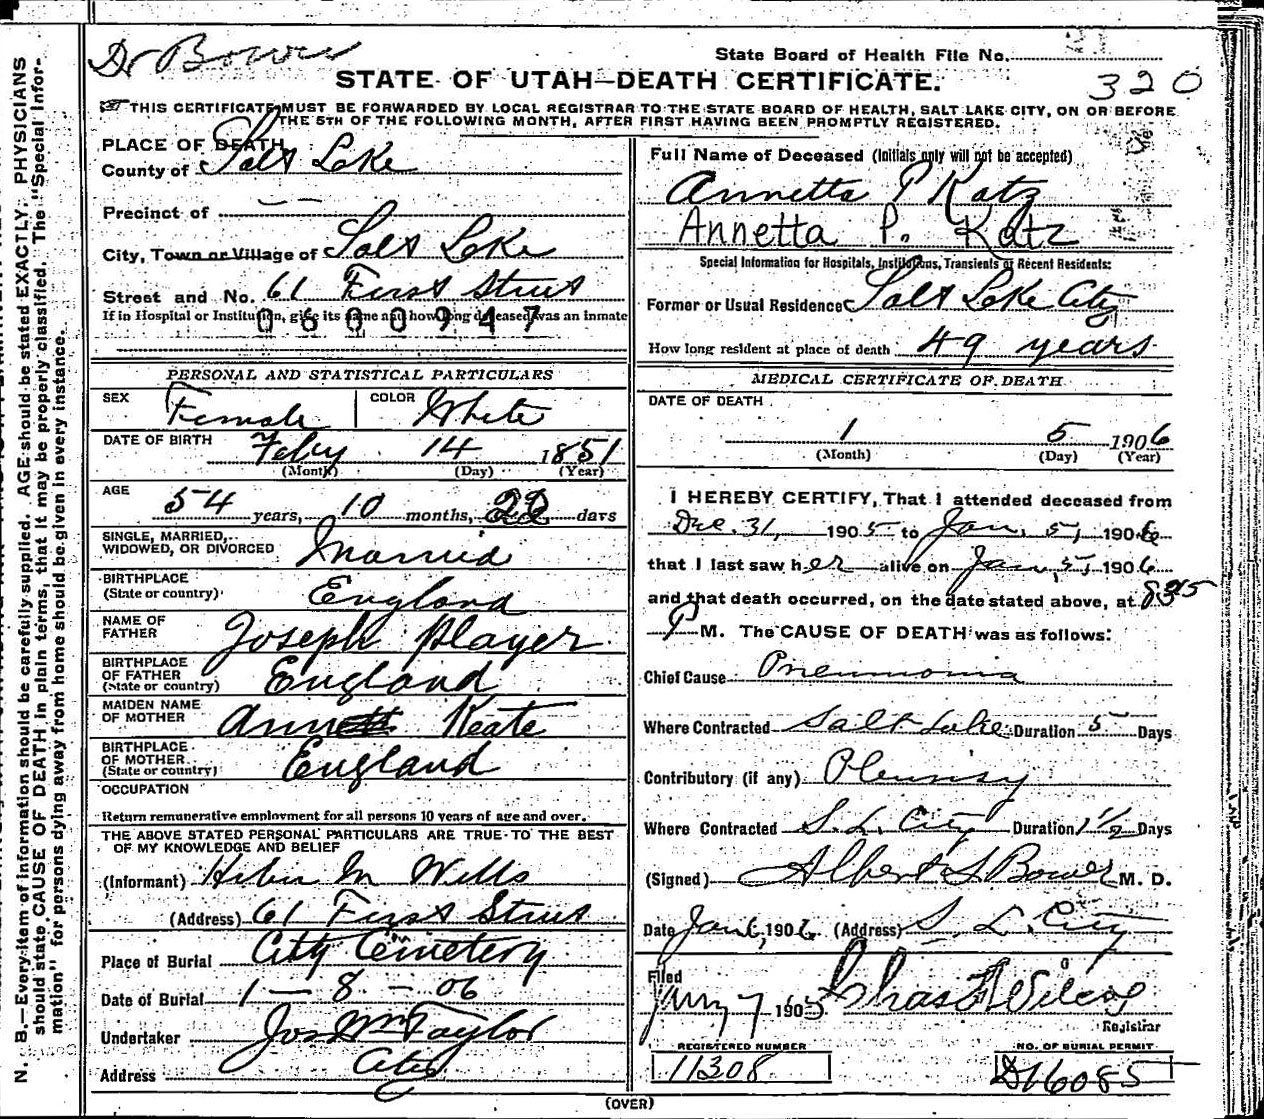 Dr Bower
State Board of Health File No.
STATE OF UTAH—DEATH CERTIFICATE.
320
THIS CERTIFICATE MUST BE FORWARDED BY LOCAL REGISTRAR TO THE STATE BOARD OF HEALTH, SALT LAKE CITY, ON OR BEFORE
THE 5TH OF THE FOLLOWING MONTH, AFTER FIRST HAVING BEEN PROMPTLY REGISTERED.
PLACE OF DEATH,
County of Salt Lake
Precinct of — —
City, Town or Village of Salt Lake
Street and No. 61 First Street
If in Hospital or Institution, give its name and how long deceased was an inmate
0600947
PERSONAL AND STATISTICAL PARTICULARS
SEX Female COLOR White
DATE OF BIRTH Feby 14 1851
(Month) (Day) (Year)
AGE 54 years, 10 months, 22 days
SINGLE, MARRIED,
WIDOWED, OR DIVORCED Married
BIRTHPLACE
(State or country) England
NAME OF
FATHER Joseph Player
BIRTHPLACE
OF FATHER
(State or country) England
MAIDEN NAME
OF MOTHER Ann Keate
BIRTHPLACE
OF MOTHER
(State or country) England
OCCUPATION
Return remunerative employment for all persons 10 years of age and over.
THE ABOVE STATED PERSONAL PARTICULARS ARE TRUE TO THE BEST
OF MY KNOWLEDGE AND BELIEF
(Informant) Heber M Wells
(Address) 61 First Street
Place of Burial City Cemetery
Date of Burial 1 — 8 — 06
Undertaker Jos Wm Taylor
Address City
Full Name of Deceased (Initials only will not be accepted)
Annetta P Katz
Annetta P. Katz
Special Information for Hospitals, Institutions, Transients or Recent Residents:
Former or Usual Residence Salt Lake City
How long resident at place of death 49 years
MEDICAL CERTIFICATE OF DEATH
DATE OF DEATH
1 5 1906
(Month) (Day) (Year)
I HEREBY CERTIFY, That I attended deceased from
Dec. 31, 1905 to Jan. 5, 1906
that I last saw her alive on Jan. 5, 1906
and that death occurred, on the date stated above, at
P M. The CAUSE OF DEATH was as follows:
Chief Cause Pneumonia
Where Contracted Salt Lake Duration 5 Days
Contributory (if any) Pleurisy
Where Contracted S. L. City Duration 1 1/2 Days
(Signed) Albert S Bower M. D.
Date Jan 6, 1906 (Address) S. L. City
Filed
Jany 7 1905 Chas F Wilcox
Registrar
REGISTERED NUMBER NO. OF BURIAL PERMIT
11308 D16085
(OVER)
N. B.—Every item of information should be carefully supplied. AGE should be stated EXACTLY. PHYSICIANS
should state CAUSE OF DEATH in plain terms, that it may be properly classified. The "Special Infor-
mation" for persons dying away from home should be given in every instance.